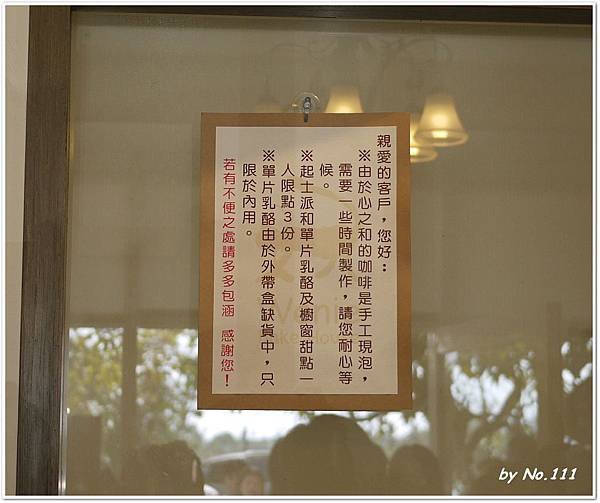 親愛的客戶，您好：
※由於心之和的咖啡是手工現泡，
需要一些時間製作，請您耐心等
候。
※起士派和單片乳酪及櫥窗甜點一
人限點3份。
※單片乳酪由於外帶盒缺貨中，只
限於內用。
若有不便之處請多多包涵 感謝您！
by No.111